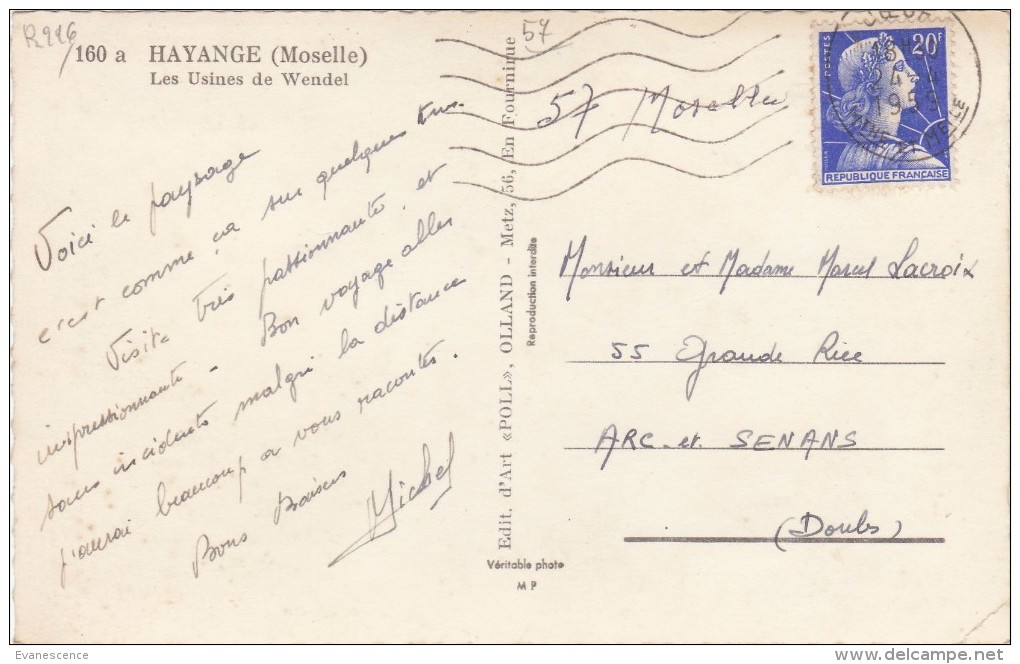 R226
160 a HAYANGE (Moselle)
Les Usines de Wendel
57
57 Moselle
Voici le paysage
c'est comme ça sur quelques kms.
Visite très passionnante et
impressionnante. Bon voyage aller
sans incidents malgré la distance
j'aurai beaucoup a vous racontés.
Bons Baisers
Michel
Edit. d'Art «POLL», OLLAND - Metz, 56, En Fournirue
Reproduction interdite
Véritable photo
M P
POSTES
20F
24
1959
REPUBLIQUE FRANÇAISE
Monsieur et Madame Marcel Lacroix
55 Grande Rue
ARC-et SENANS
(Doubs)
Evanescence
www.delcampe.net